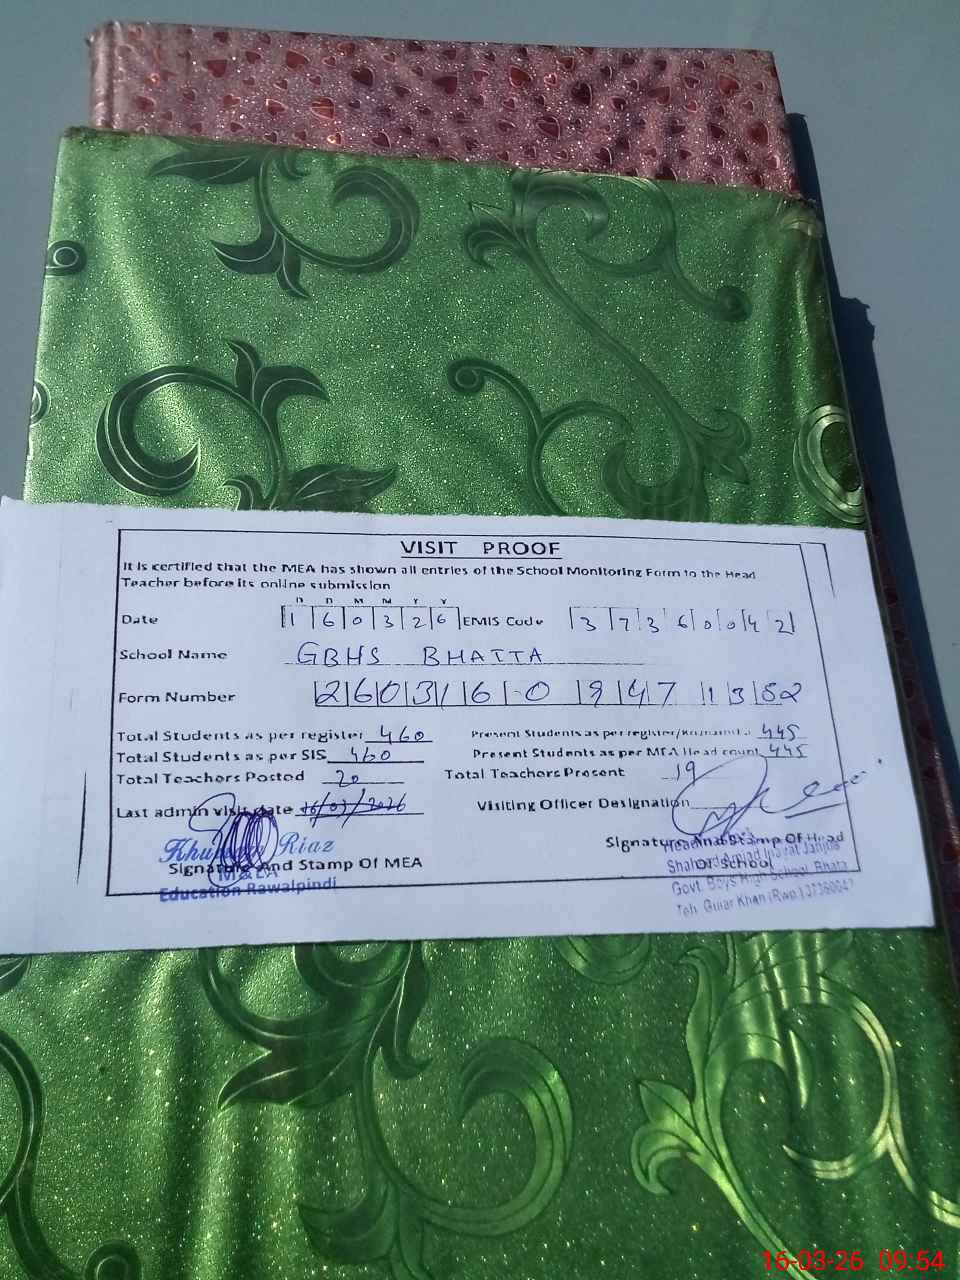 VISIT PROOF
It is certified that the MEA has shown all entries of the School Monitoring Form to the Head
Teacher before its online submission
D D M M Y Y
Date 1 6 0 3 2 6 EMIS Code 3 7 3 6 0 0 4 2
School Name GBHS BHATTA
Form Number 2 6 0 3 1 6 - 0 9 4 7 1 3 5 2
Total Students as per register 460 Present Students as per register 445
Total Students as per SIS 460 Present Students as per MEA Head count 445
Total Teachers Posted 20 Total Teachers Present 19
Last admin visit date 16/03/2026 Visiting Officer Designation
Riaz
Signature And Stamp Of MEA
M & EA
Education Rawalpindi
Signature And Stamp Of Head
Of School
Govt. Boys High School, Bhatta
Teh. Gujar Khan (Rwp.) 37360042
16-03-26 09:54